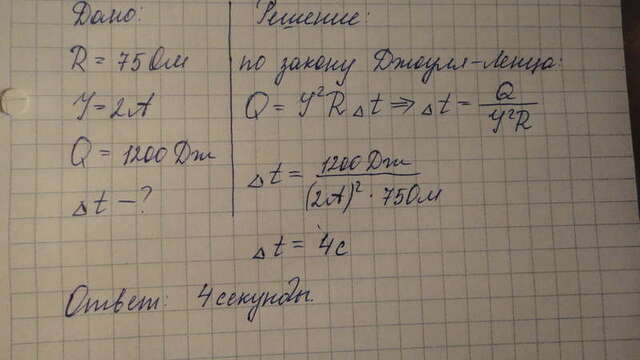 Дано:
R = 75 Ом
I = 2A
Q = 1200 Дж
Δt - ?
Решение:
по закону Джоуля-Ленца:
Q = I²RΔt ⇒ Δt = Q / I²R
Δt = 1200 Дж / (2A)² · 75 Ом
Δt = 4с
Ответ: 4 секунды.